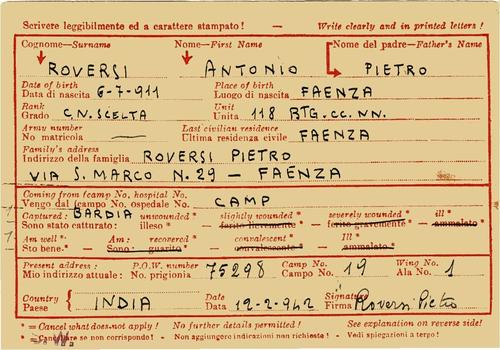 Scrivere leggibilmente ed a carattere stampato! - Write clearly and in printed letters!
Cognome—Surname Nome—First Name Nome del padre—Father's Name
ROVERSI ANTONIO PIETRO
Date of birth Place of birth
Data di nascita 6-7-911 Luogo di nascita FAENZA
Rank Unit
Grado C.N. SCELTA Unita 118 BTG. CC. NN.
Army number Last civilian residence
No matricola — Ultima residenza civile FAENZA
Family's address
Indirizzo della famiglia ROVERSI PIETRO
VIA S. MARCO N. 29 - FAENZA
Coming from (camp No, hospital No.
Vengo dal (campo No. ospedale No. CAMP
Captured: BARDIA unwounded* - slightly wounded* - severely wounded* - ill*
Sono stato catturato: illeso* - ferito lievemente* - ferito gravemente* - ammalato*
Am well*- Am: recovered - convalescent* - Ill*
Sto bene.* - Sono: guarito* - convalescente* - ammalato.*
Present address: P.O.W. number Camp No. Wing No.
Mio indirizzo attuale: No. prigionia 75298 Campo No. 19 Ala No. 1
Country Date Signature
Paese { INDIA Data 12-2-942 Firma Roversi Pietro
* = Cancel what does not apply! No further details permitted! See explanation on reverse side!
* = Cancellare se non corrispondo! - Non aggiungere indicazioni non richieste! - Vedi spiegazioni a tergo!